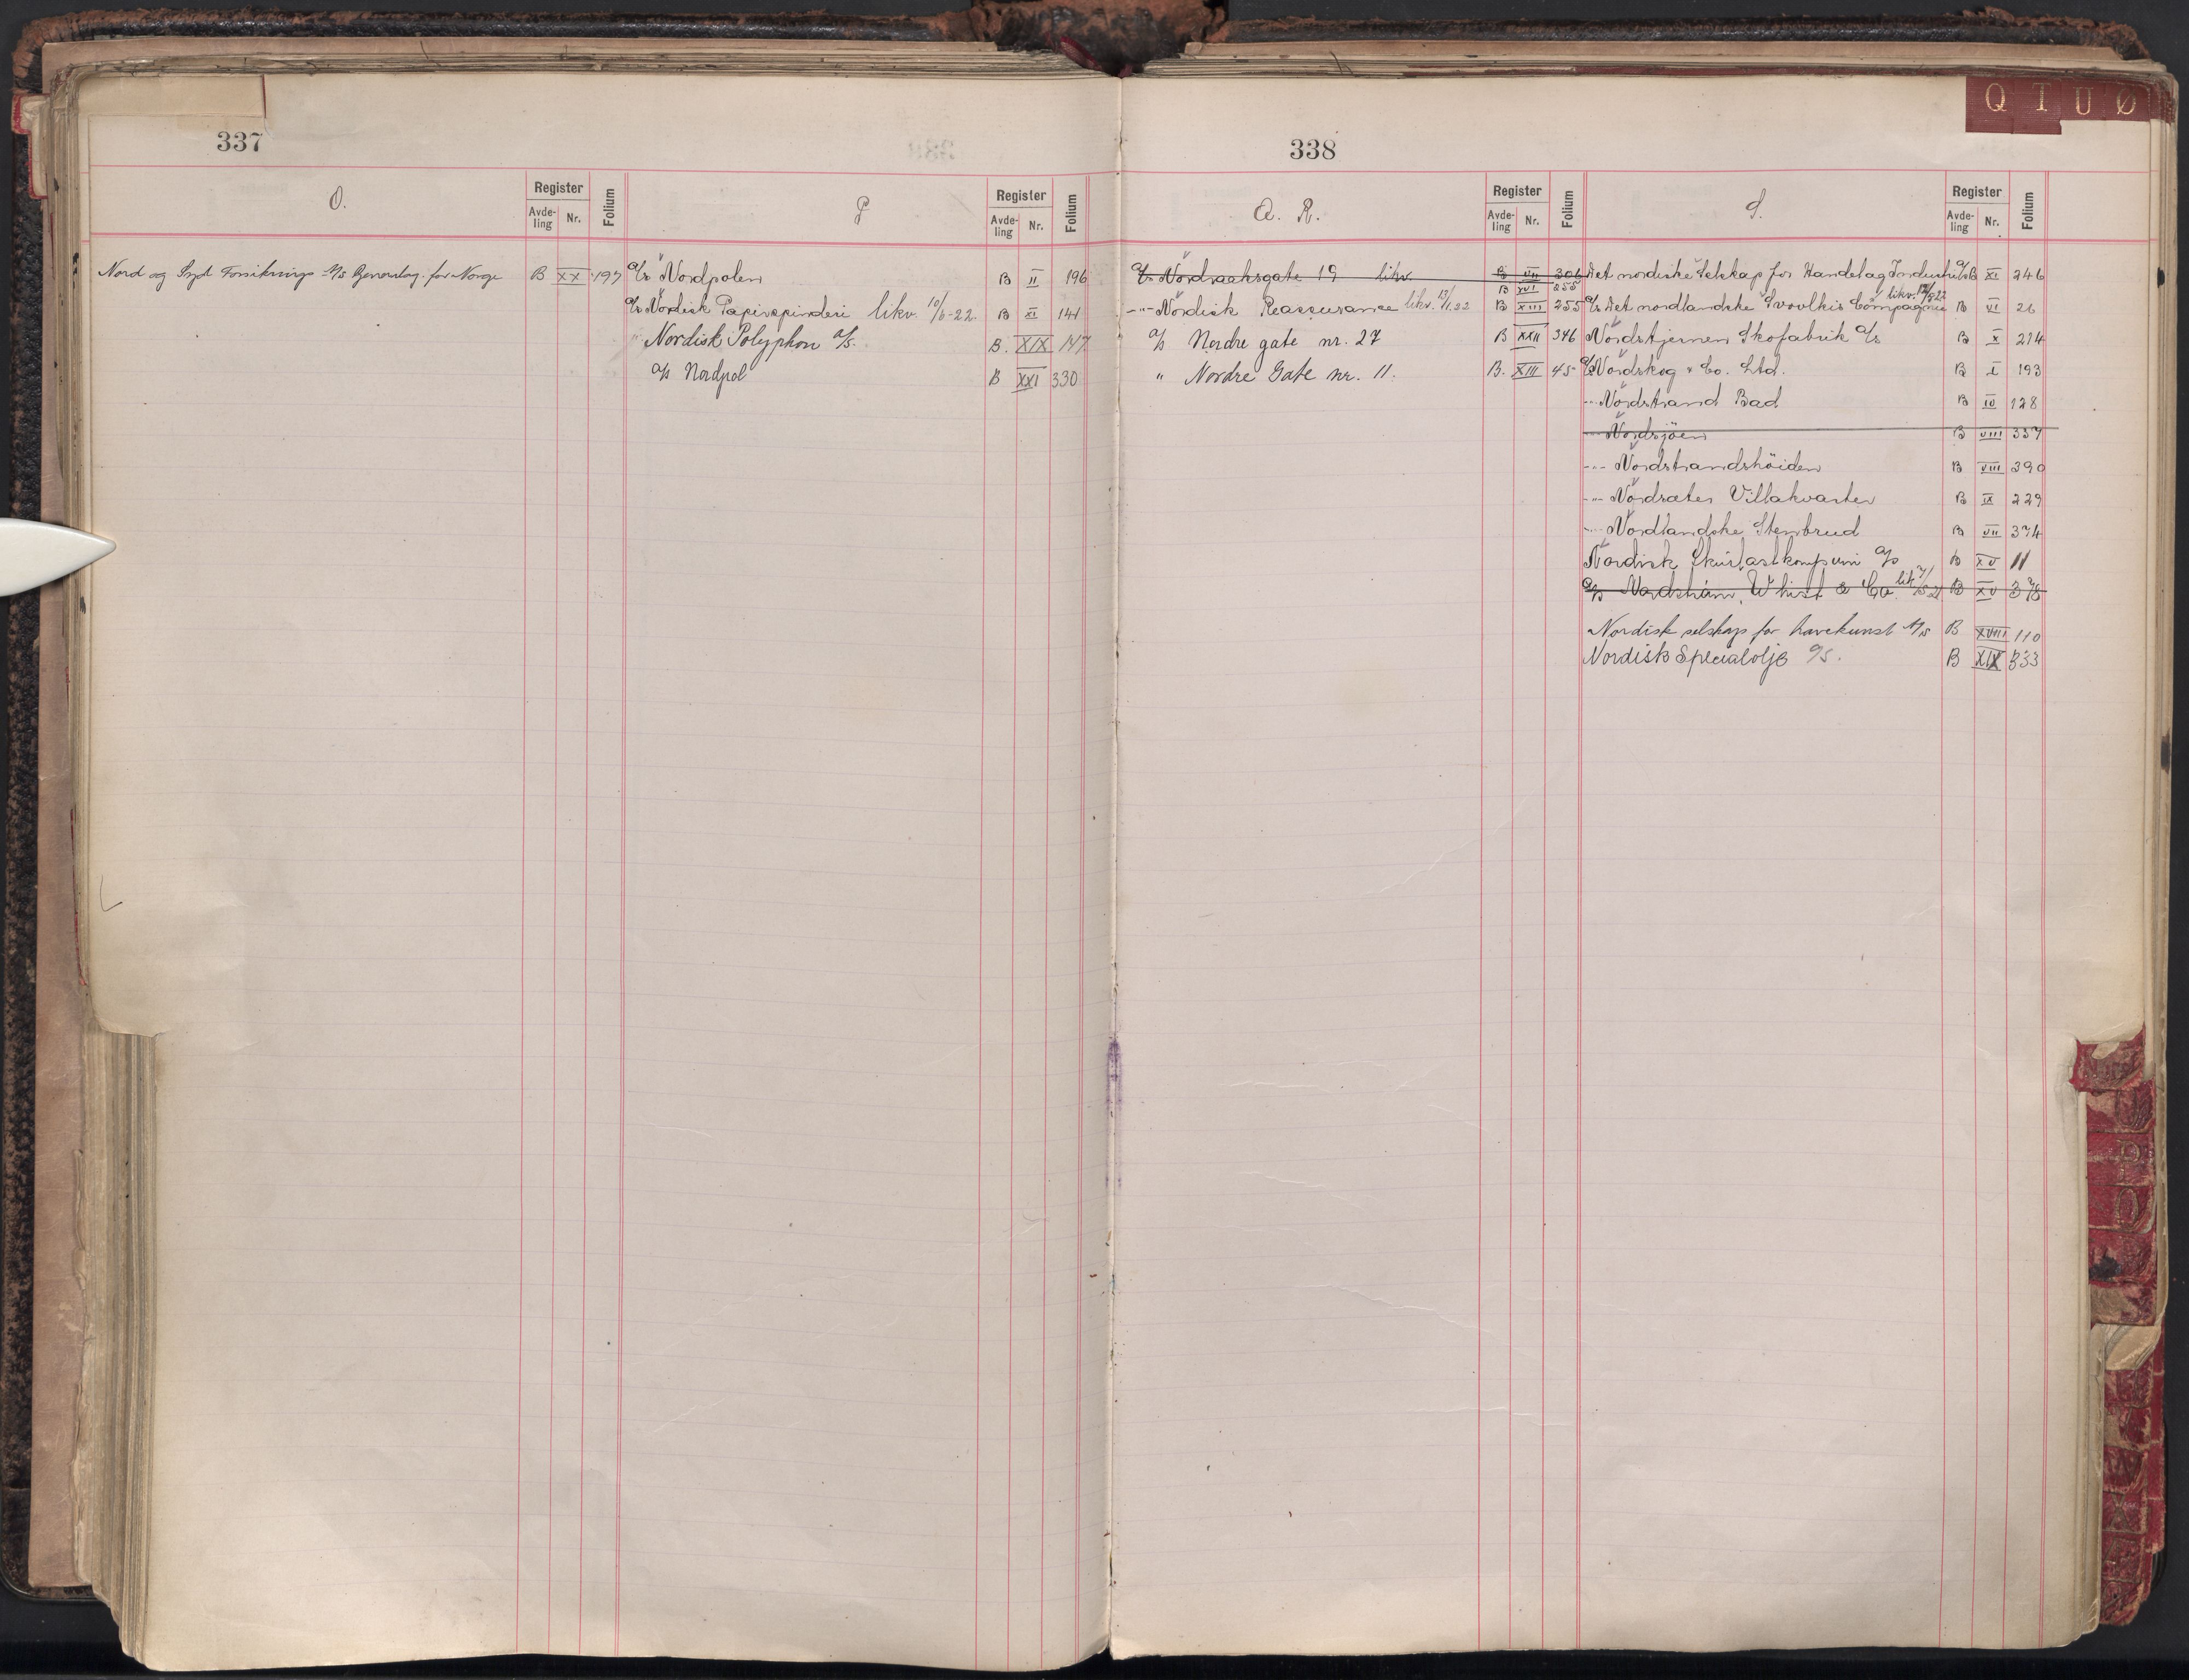 337
O.
Register
Avde-
ling
Nr.
Folium
P
Register
Avde-
ling
Nr.
Folium
Nord og Syd Forsikrings A/S Generalag. for Norge B XX 197
A/s Nordpolen B II 196
A/s Nordisk Papirspinderi likv. 10/6-22. B XI 141
" Nordisk Polyphon A/S. B. XIX 147
A/s Nordpol B XXI 330
338
Q T U Ø
Q. R.
Register
Avde-
ling
Nr.
Folium
S.
Register
Avde-
ling
Nr.
Folium
A/s Nordraaksgate 19 likv. B VII 306
B XVI 255
-"- Nordisk Reassurance likv. 13/1.22 B XIII 255
A/s Nordre gate nr. 27 B XXII 346
" Nordre Gate nr. 11. B. XIII 45
Det nordiske Selskap for Handel og Industri A/s B XI 246
A/s Det nordlandske Svovlkis Compagnie likv. B VI 26
Nordstjernen Skofabrik A/s B X 274
A/s Nordskog & Co. Ltd. B I 193
-"- Nordstrand Bad B IV 128
-"- Nordsjøen B VIII 337
-"- Nordstrandshöiden B VIII 390
-"- Nordsæter Villakvarter B IX 229
-"- Nordlandske Stenbrud B VII 374
Nordisk A/s B XV 11
A/s Nordström, Whist & Co. lik. B XV 378
Nordisk selskap for havekunst A/S B XVIII 110
Nordisk Specialolje A/S. B XIX 333
P